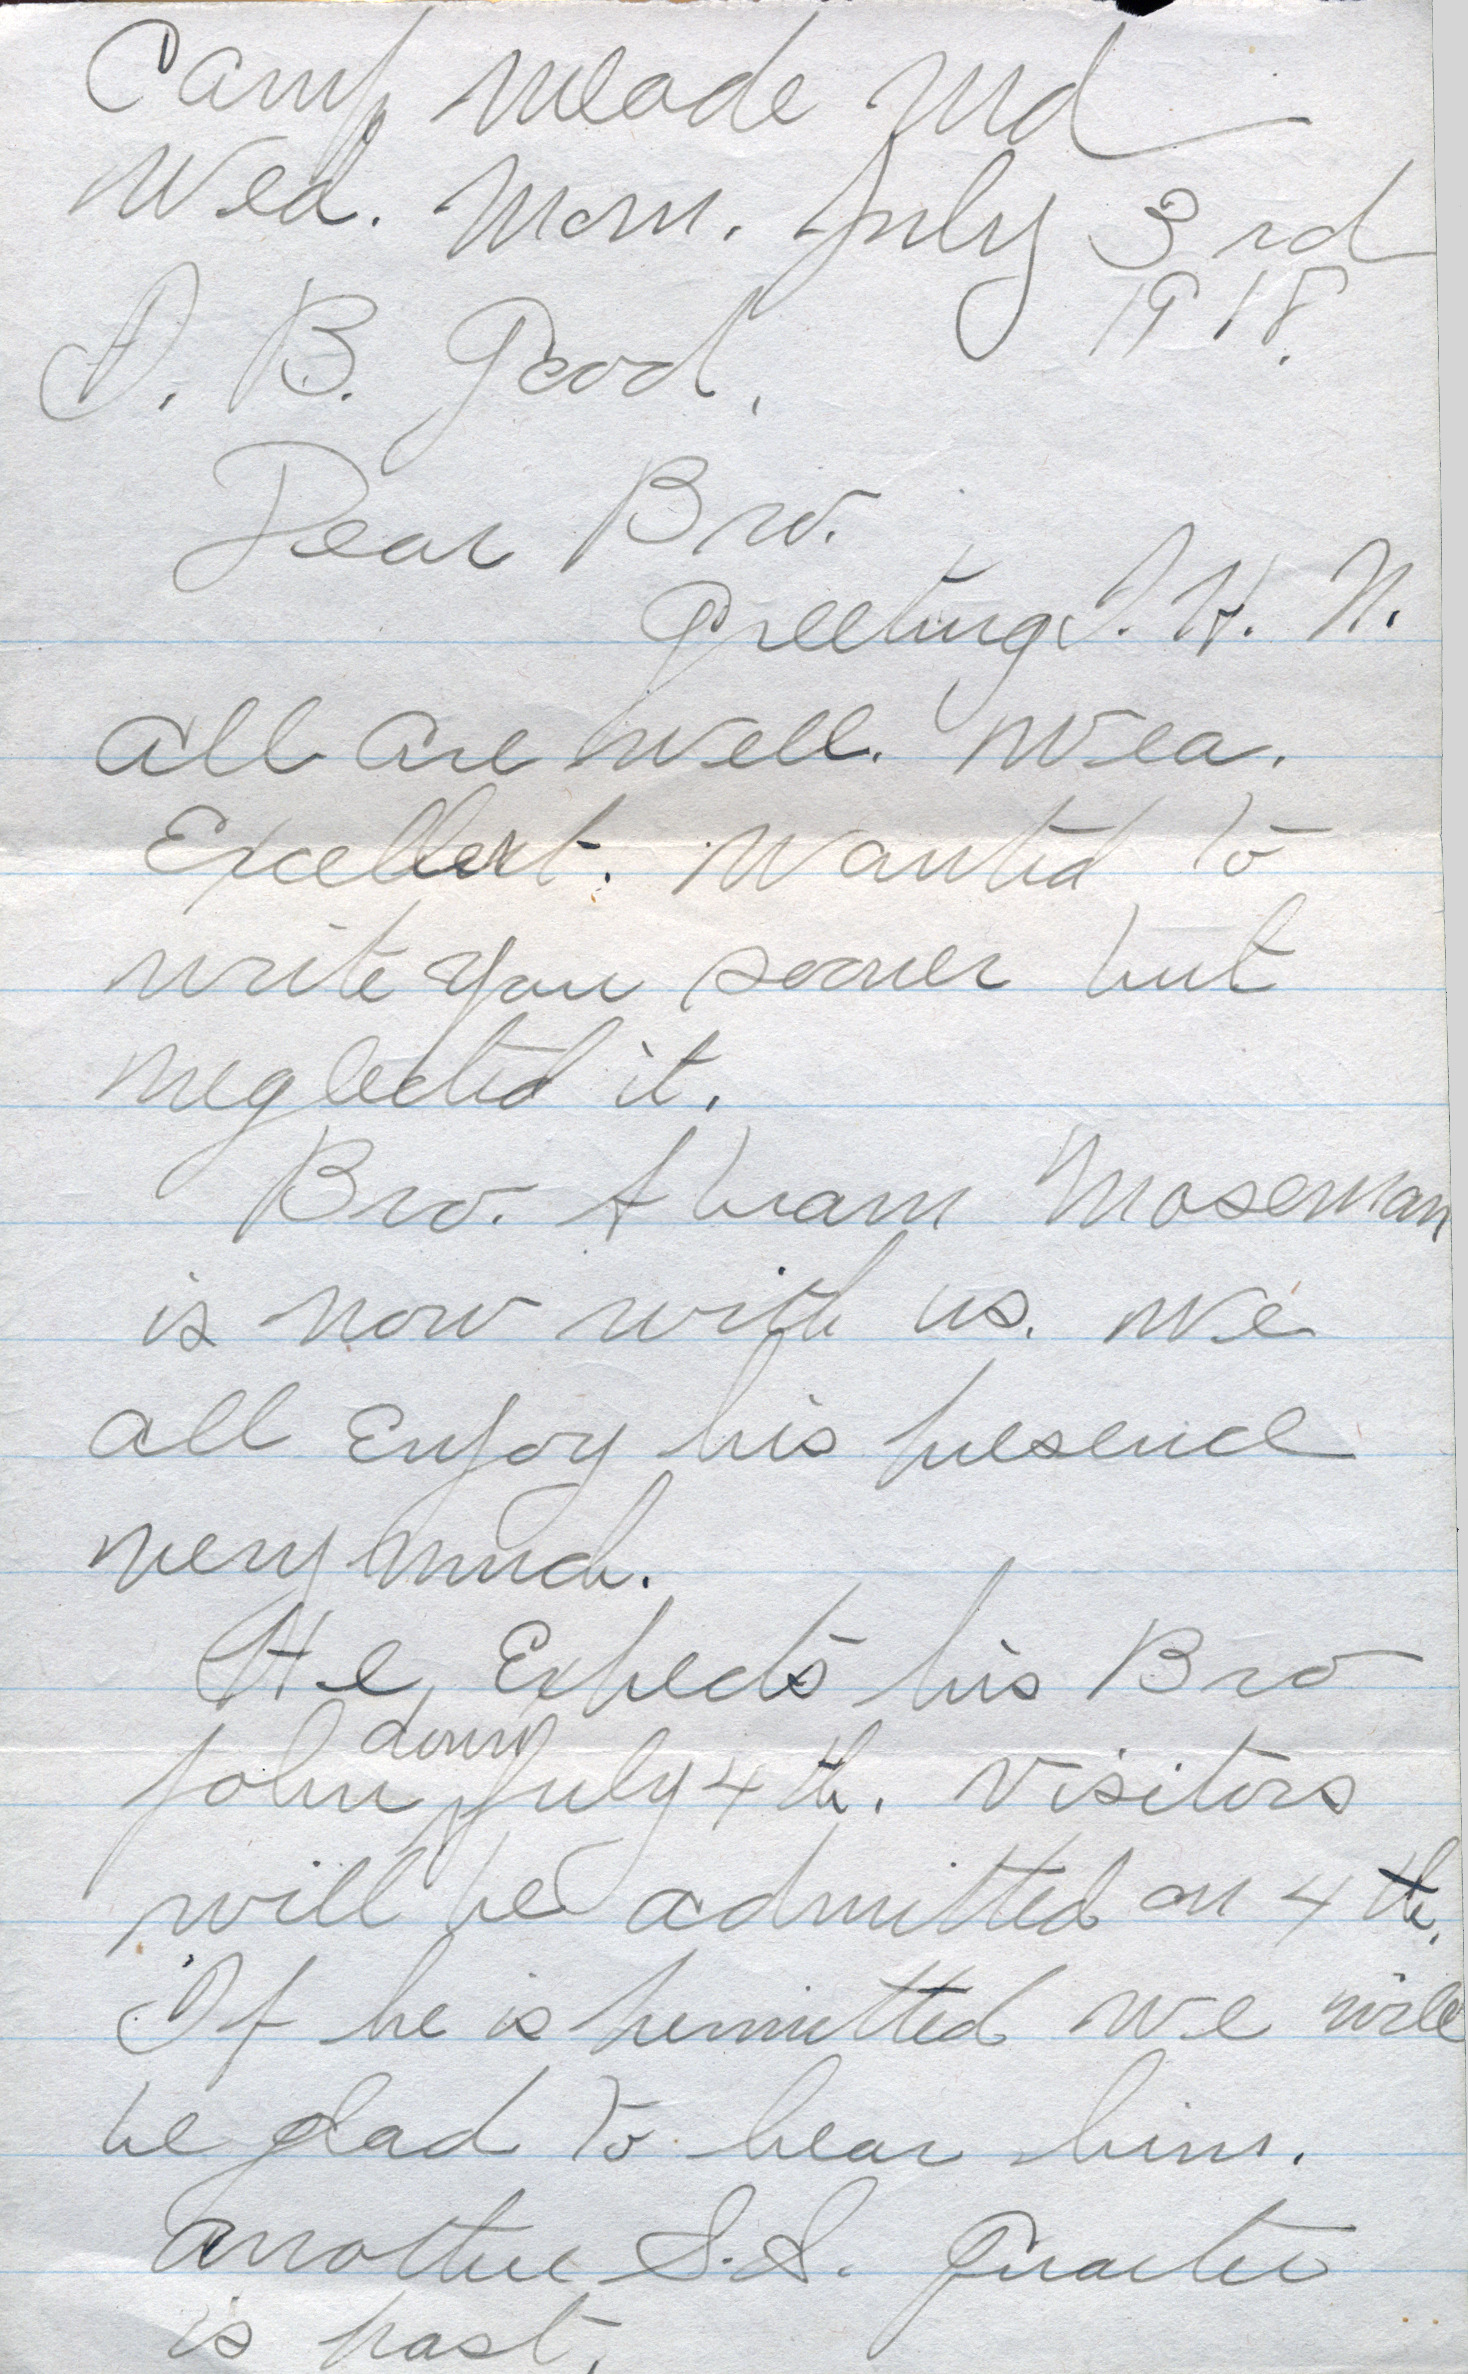 Camp Meade Md
Wed. Morn. July 3rd
1918.
D. B. Good,
Dear Bro.
Greeting I. H. N.
all are well. Wea.
Excellent. Wanted to
write you sooner but
neglected it.
Bro. Abram Moseman
is now with us. We
all Enjoy his presence
very much.
He Expects his Bro
John down July 4th. Visitors
will be admitted on 4th.
If he is permitted we will
be glad to hear him.
Another S.S. Quarter
is past.